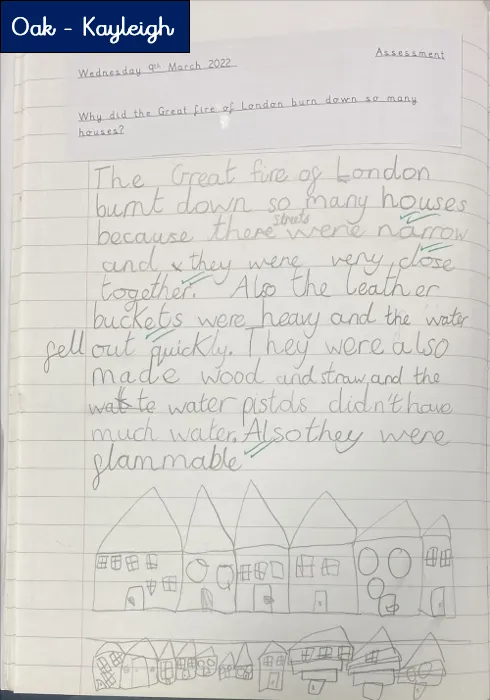 Oak - Kayleigh
Assessment
Wednesday 9th March 2022
Why did the Great fire of London burn down so many
houses?
The Great fire of London
burnt down so many houses
streets
because there were narrow
and they were very close
together. Also the leather
buckets were heavy and the water
fell out quickly. They were also
made wood and straw and the
water pistols didn't have
much water. Also they were
flammable